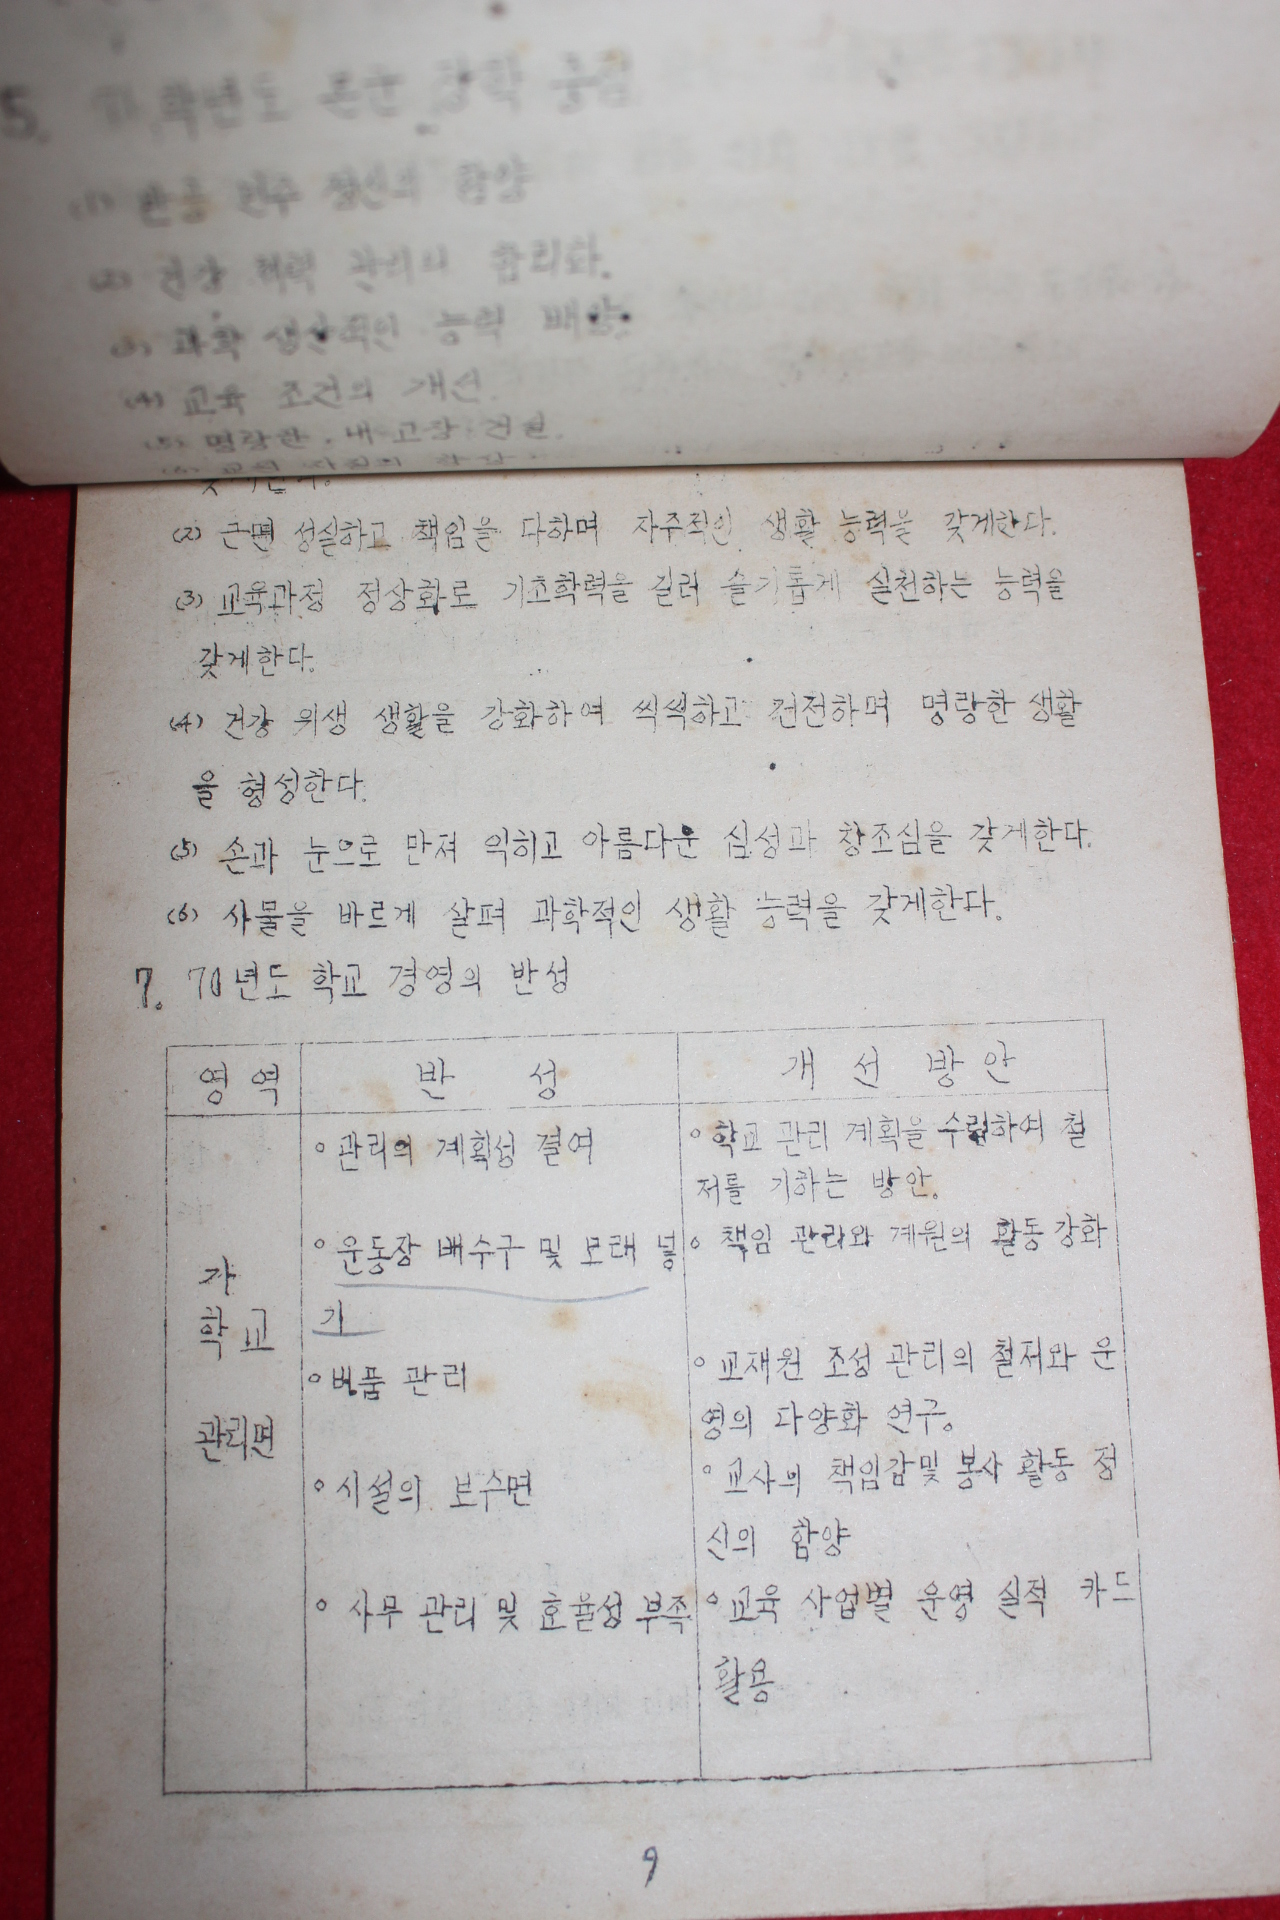 5. 학년도 본군 장학 중점
(1) 민족 정신의 함양
(2) 건강 체력 관리의 합리화.
(3) 과학 생산적인 능력 배양.
(4) 교육 조건의 개선.
(5) 명랑한 내 고장 건설.
(2) 근면 성실하고 책임을 다하며 자주적인 생활 능력을 갖게한다.
(3) 교육과정 정상화로 기초학력을 길러 슬기롭게 실천하는 능력을
갖게한다.
(4) 건강 위생 생활을 강화하여 씩씩하고 건전하며 명랑한 생활
을 형성한다.
(5) 손과 눈으로 만져 익히고 아름다운 심성과 창조심을 갖게한다.
(6) 사물을 바르게 살펴 과학적인 생활 능력을 갖게한다.
7. 70년도 학교 경영의 반성
영역 반성 개선방안
가
학교
관리면
○ 관리의 계획성 결여
○ 운동장 배수구 및 모래 넣
기
○ 비품 관리
○ 시설의 보수면
○ 사무 관리 및 효율성 부족
○ 학교 관리 계획을 수립하여 철
저를 기하는 방안.
○ 책임 관리와 계원의 활동 강화
○ 교재원 조성 관리의 철저와 운
영의 다양화 연구.
○ 교사의 책임감및 봉사 활동 정
신의 함양
○ 교육 사업별 운영 실적 카드
활용
9